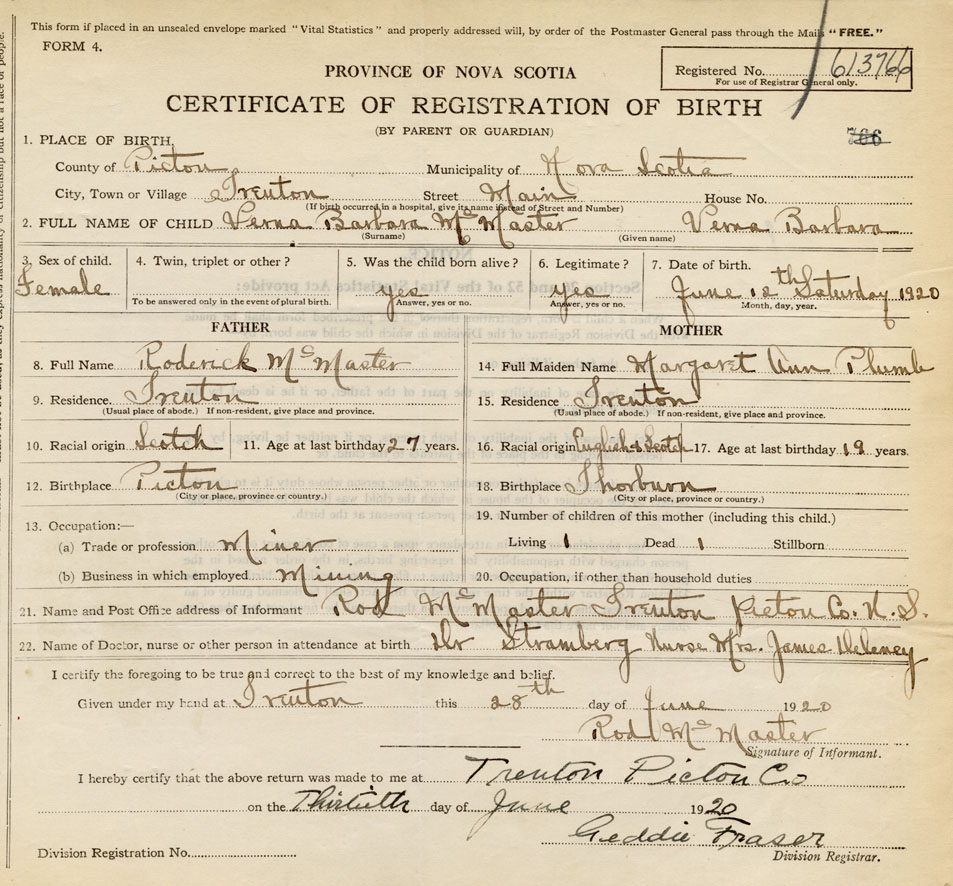 This form if placed in an unsealed envelope marked "Vital Statistics" and properly addressed will, by order of the Postmaster General pass through the Mails "FREE."
FORM 4.
Registered No. 613766
For use of Registrar General only.
PROVINCE OF NOVA SCOTIA
CERTIFICATE OF REGISTRATION OF BIRTH
(BY PARENT OR GUARDIAN)
766
1. PLACE OF BIRTH,
County of Picton Municipality of Nova Scotia
City, Town or Village Trenton Street Main House No.
(If birth occurred in a hospital, give its name instead of Street and Number)
2. FULL NAME OF CHILD Verna Barbara McMaster Verna Barbara
(Surname) (Given name)
3. Sex of child. 4. Twin, triplet or other? 5. Was the child born alive? 6. Legitimate? 7. Date of birth.
Female yes yes June 12th Saturday 1920
To be answered only in the event of plural birth. Answer, yes or no. Answer, yes or no. Month, day, year.
FATHER MOTHER
8. Full Name Roderick McMaster 14. Full Maiden Name Margaret Ann Plumb
9. Residence. Trenton 15. Residence Trenton
(Usual place of abode.) If non-resident, give place and province. (Usual place of abode.) If non-resident, give place and province.
10. Racial origin Scotch 11. Age at last birthday 27 years. 16. Racial origin English & Scotch 17. Age at last birthday 19 years.
12. Birthplace Picton 18. Birthplace Thorburn
(City or place, province or country.) (City or place, province or country.)
13. Occupation:— 19. Number of children of this mother (including this child.)
(a) Trade or profession Miner Living 1 Dead 1 Stillborn
(b) Business in which employed Mining 20. Occupation, if other than household duties
21. Name and Post Office address of Informant Rod McMaster Trenton Picton Co. N.S.
22. Name of Doctor, nurse or other person in attendance at birth Dr Stramberg Nurse Mrs. James Deleney
I certify the foregoing to be true and correct to the best of my knowledge and belief.
Given under my hand at Trenton this 28th day of June 1920
Rod McMaster
Signature of Informant.
I hereby certify that the above return was made to me at Trenton Picton Co
on the Thirtieth day of June 1920
Geddie Fraser
Division Registrar.
Division Registration No.